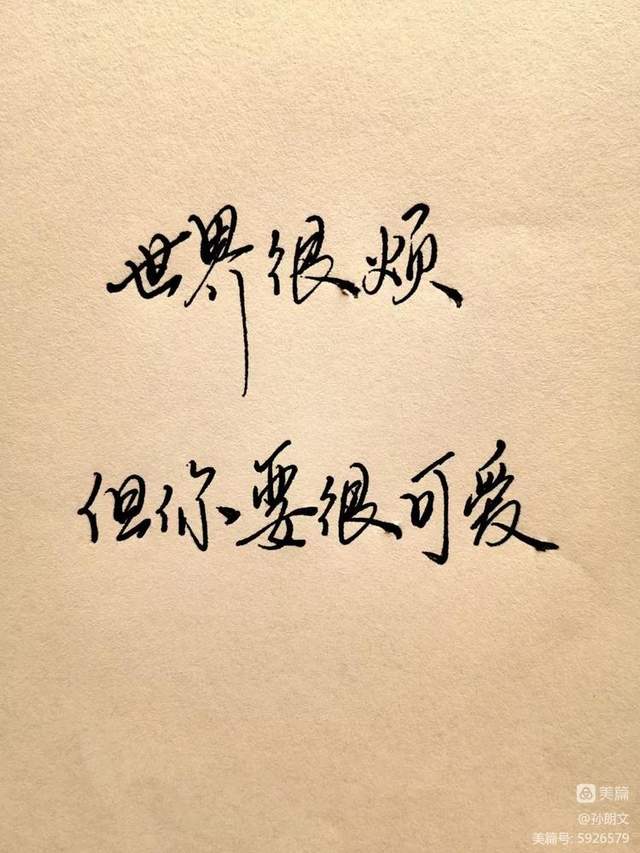 世界很烦
但你要很可爱
美篇
@孙朗文
美篇号: 5926579